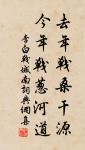 去年戰桑干源
今年戰蔥河道
李白戰城南詞典網集